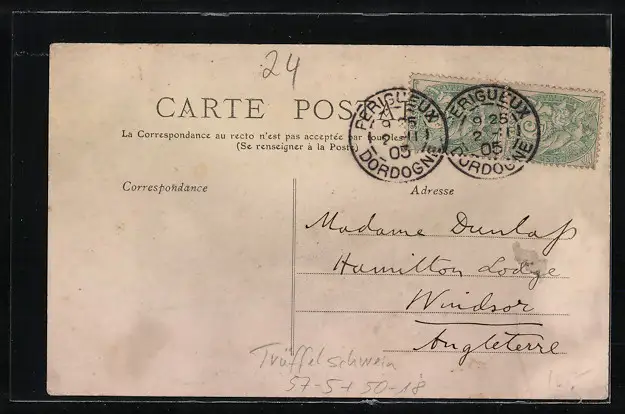 24
CARTE POS
PERIGUEUX
9 25
2 - 11
05
DORDOGNE
PERIGUEUX
9 25
2 - 11
05
DORDOGNE
5
La Correspondance au recto n'est pas acceptée par tous les
(Se renseigner à la Poste
Correspondance
Adresse
Madame Dunlap
Hamilton Lodge
Windsor
Angleterre
Trüffelschwein
57-5+50-18